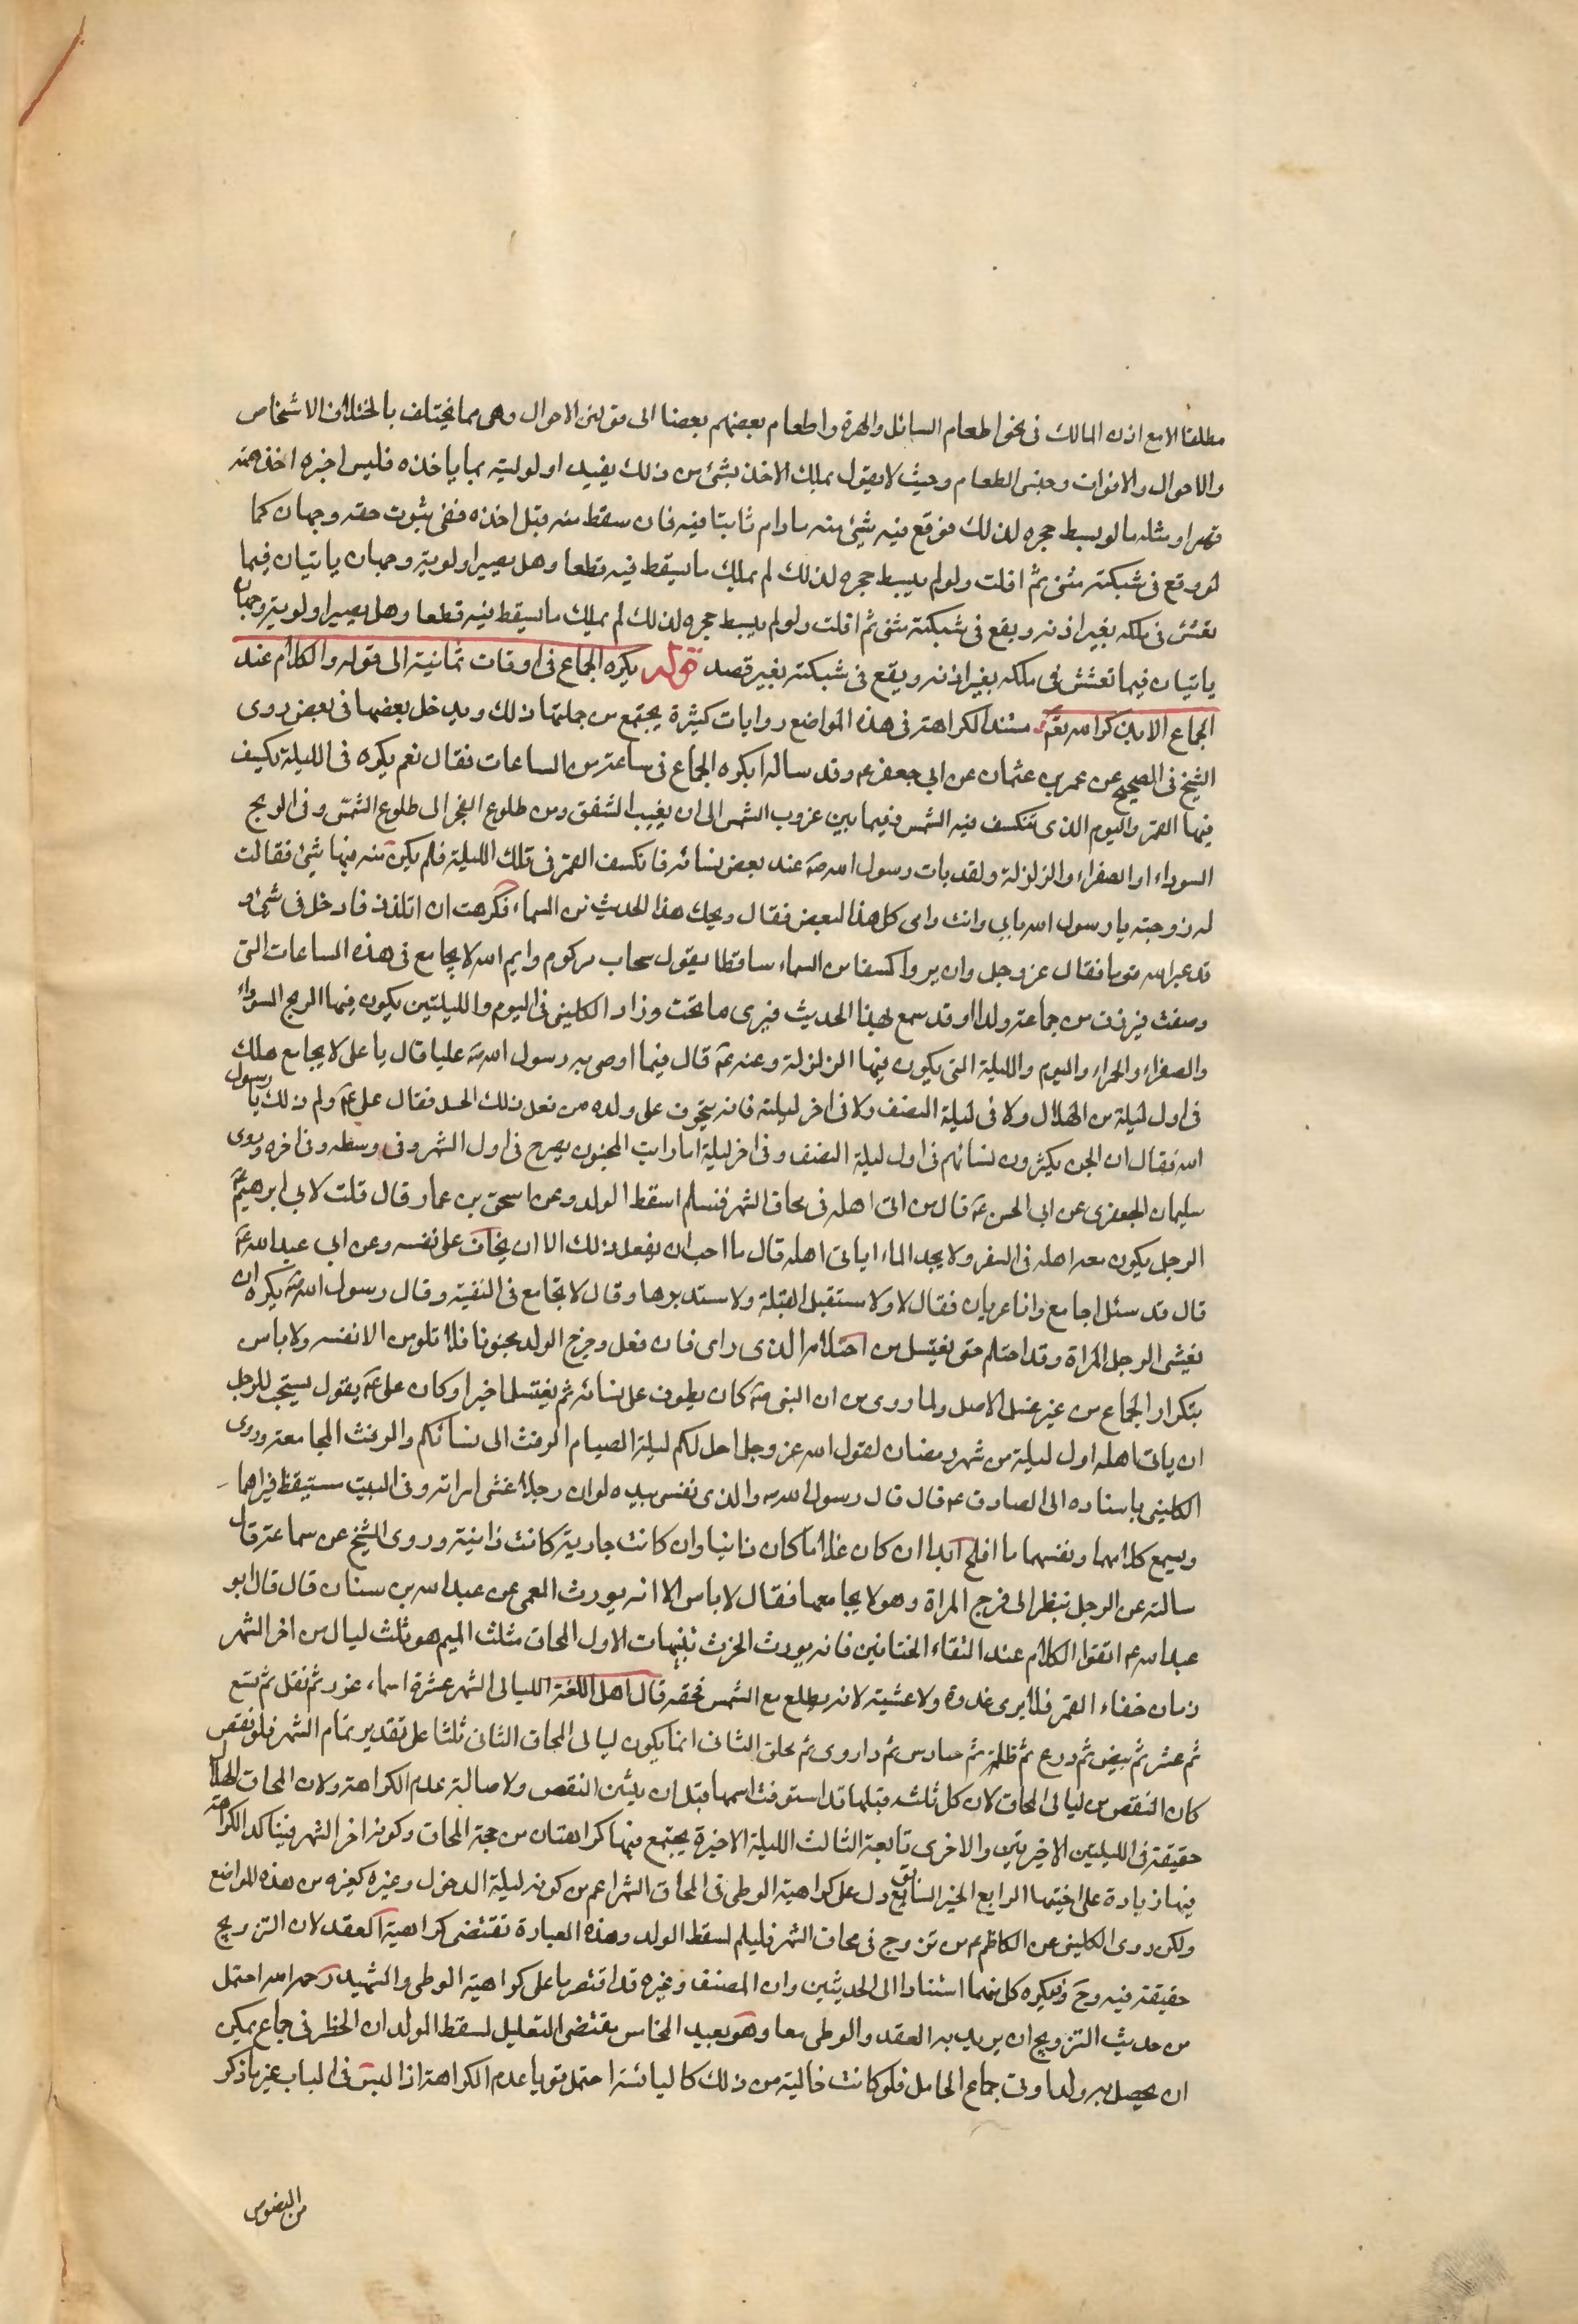 مطلقا الا مع اذن المالك فى نحو اطعام السائل والهرة واطعام بعضهم بعضا الى قرائن الاحوال وهى مما يختلف باختلاف الاشخاص
والاحوال والاوقات وجنس الطعام وحيث لا يقول بملك الاخذ بشئ من ذلك يفيد اولوليته بما ياخذه فليس لغيره اخذه منه
قهرا ومثله ما لو بسط حجره لذلك فوقع فيه شئ منه مادام ثابتا فيه فان سقط منه قبل اخذه ففى ثبوت حقه وجهان كما
لو وقع فى شبكته شئ ثم افلت ولو لم يبسط حجره لذلك لم يملك ما يسقط فيه قطعا وهل يصير اولويته وجهان ياتيان فيما
تعشش فى ملكه بغير اذنه ويقع فى شبكته شئ ثم افلت ولو لم يبسط حجره لذلك لم يملك ما يسقط فيه قطعا وهل يصير اولويته وجهان
ياتيان فيما تعشش فى ملكه بغير اذنه ويقع فى شبكته بغير قصد قوله يكره الجماع فى اوقات ثمانية الى قوله والكلام عند
الجماع الا بذكر الله تع مستند الكراهة فى هذه المواضع روايات كثيرة يجتمع من جملتها ذلك ويدخل بعضها فى بعض روى
الشيخ فى الصحيح عن عمر بن عثمان عن ابى جعفر ع وقد ساله ايكره الجماع فى ساعة من الساعات فقال نعم يكره فى الليلة يكسف
فيها القمر واليوم الذى تنكسف فيه الشمس وفيما بين غروب الشمس الى ان يغيب الشفق ومن طلوع الفجر الى طلوع الشمس وفى الريح
السوداء او الصفراء والزلزلة ولقد بات رسول الله ص عند بعض نسائه فانكسف القمر فى تلك الليلة فلم يكن منه فيها شئ فقالت
له زوجته يا رسول الله بابى وانت وامى كل هذا لبعض فقال ويحك هذا الحديث من السماء فكرهت ان اتلذذ فادخل فى شئ و
قد عير الله قوما فقال عز وجل وان يروا كسفا من السماء ساقطا يقول سحاب مركوم وايم الله لا يجامع فى هذه الساعات التى
وصفت فيرزق من جماعه ولدا وقد سمع بهذا الحديث فيرى ما تحت وزاد الكلينى فى اليوم والليلتين يكون فيهما الريح السوداء
والصفراء والحمراء واليوم والليلة التى يكون فيها الزلزلة وعنه ع قال فيما اوصى به رسول الله ص عليا قال يا على لا يجامع هلك
فى اول ليلة من الهلال ولا فى ليلة النصف ولا فى اخر ليلة فانه يتخوف على ولده من فعل ذلك الحد فقال على ع ولم ذلك يا رسول
الله فقال ان الجن يكثرون نسائهم فى اول ليلة النصف وفى اخر ليلة اما رايت المجنون يصرع فى اول الشهر وفى وسطه وفى اخره وروى
سليمان الجعفرى عن ابى الحسن ع قال من اتى اهله فى محاق الشهر فليسلم اسقط الولد وعن اسحق بن عمار قال قلت لابى ابرهيم ع
الرجل يكون معه اهله فى السفر ولا يجد الماء ايأتى اهله قال ما احب ان يفعل ذلك الا ان يخاف على نفسه وعن ابى عبد الله ع
قال قد سئل اجامع وانا عريان فقال لا ولا مستقبل القبلة ولا مستدبرها وقال لا تجامع فى السفينة وقال رسول الله ص يكره ان
يغشى الرجل المراة وقد احتلم حتى يغتسل من احتلامه الذى راى فان فعل وخرج الولد مجنونا فلا تلومن الا نفسه ولا باس
بتكرار الجماع من غير غسل الاصل ولما روى من ان النبى ص كان يطوف على نسائه ثم يغتسل اخيرا وكان على ع يقول يستحب للرجل
ان ياتى اهله اول ليلة من شهر رمضان لقول الله عز وجل احل لكم ليلة الصيام الرفث الى نسائكم والرفث المجامعة وروى
الكلينى باسناده الى الصادق ع قال قال رسول الله ص والذى نفسى بيده لو ان رجلا غشى امراته وفى البيت مستيقظ فيراهما
ويسمع كلامهما ونفسهما ما افلح ابدا ان كان غلاما كان زانيا وان كانت جارية كانت زانية وروى الشيخ عن سماعة قال
سالته عن الرجل ينظر الى فرج المراة وهو لا يجامعها فقال لا باس الا انه يورث العمى عن عبد الله بن سنان قال قال ابو
عبد الله ع اتقوا الكلام عند التقاء الختانين فانه يورث الخرث تنبيهات الاول المحاق مثلث الميم هو ثلث ليال من اخر الشهر
زمان خفاء القمر فلا يرى غدوة ولا عشية لانه يطلع مع الشمس فحقه قال اهل اللغة الليالى الشهر عشرة اسماء غرر ثم نفل ثم تسع
ثم عشر ثم بيض ثم درع ثم ظلم ثم حنادس ثم داروى ثم محاق الثانى انما يكون ليالى المحاق الثانى ثلثا على تقدير تمام الشهر فلو نقص
كان النقص من ليالى المحاق لان كل ثلثه قبلها قد استوفت اسمها قبل ان يتبين النقص ولاصالة عدم الكراهة ولان المحاق الهلال
حقيقة فى الليلتين الاخيرتين والاخرى تابعة الثالث الليلة الاخيرة يجتمع فيها كراهتان من حجة المحاق وكونه اخر الشهر فيتاكد الكراهة
فيها زيادة على اختيها الرابع الخبر السابق دل على كراهية الوطى فى المحاق الشهر اعم من كونه ليلة الدخول وغيره كغيره من هذه المواضع
ولكن روى الكلينى عن الكاظم ع من تزوج فى محاق الشهر فليسلم لسقط الولد وهذه العبارة تقتضى كراهية العقد لان التزويج
حقيقة فيه وح فيكره كل منهما استنادا الى الحديثين وان المصنف وغيره قد اقتصرا على كراهية الوطى والشهيد رحمه الله احتمل
من حديث التزويج ان يريد به العقد والوطى معا وهو بعيد الخامس مقتضى التعليل لسقط الولد ان الحظر فى جماع يمكن
ان يحصل به ولدا وفى جماع الحامل فلو كانت خالية من ذلك كاليائسة احتمل قويا عدم الكراهة اذ ليس فى الباب غير ما ذكر
من النصوص